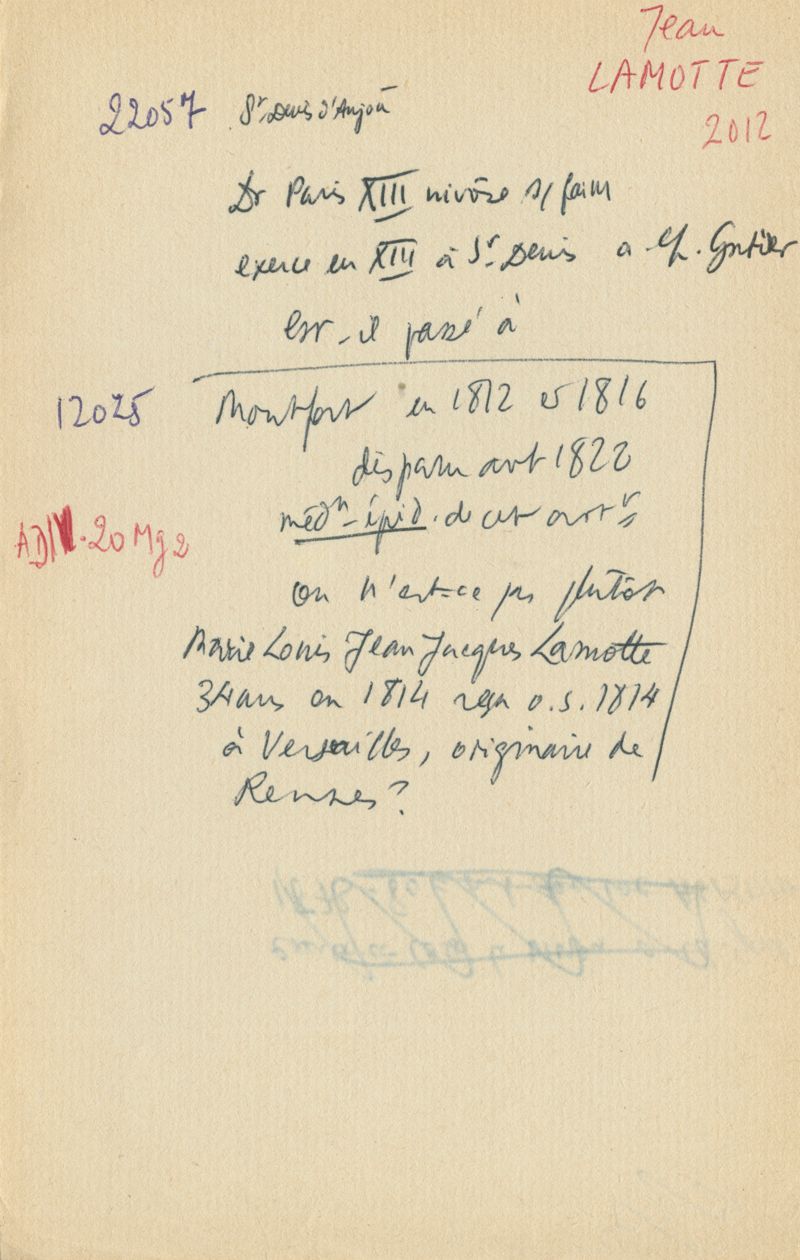 Jean
LAMOTTE
2012
22057 St Denis d'Anjou
Dr Paris XIII nivôse s/
exerce en XIII à St Denis a
est-il passé à
12025 Montfort en 1812 et 1816
disparu avt 1822
médn-épid. de cet arrt
AD IV. 20 Mg 2
ou n'est-ce pas plutôt
Marie Louis Jean Jacques Lamotte
34 ans en 1814 reçu o.s. 1814
à Versailles, originaire de
Rennes?